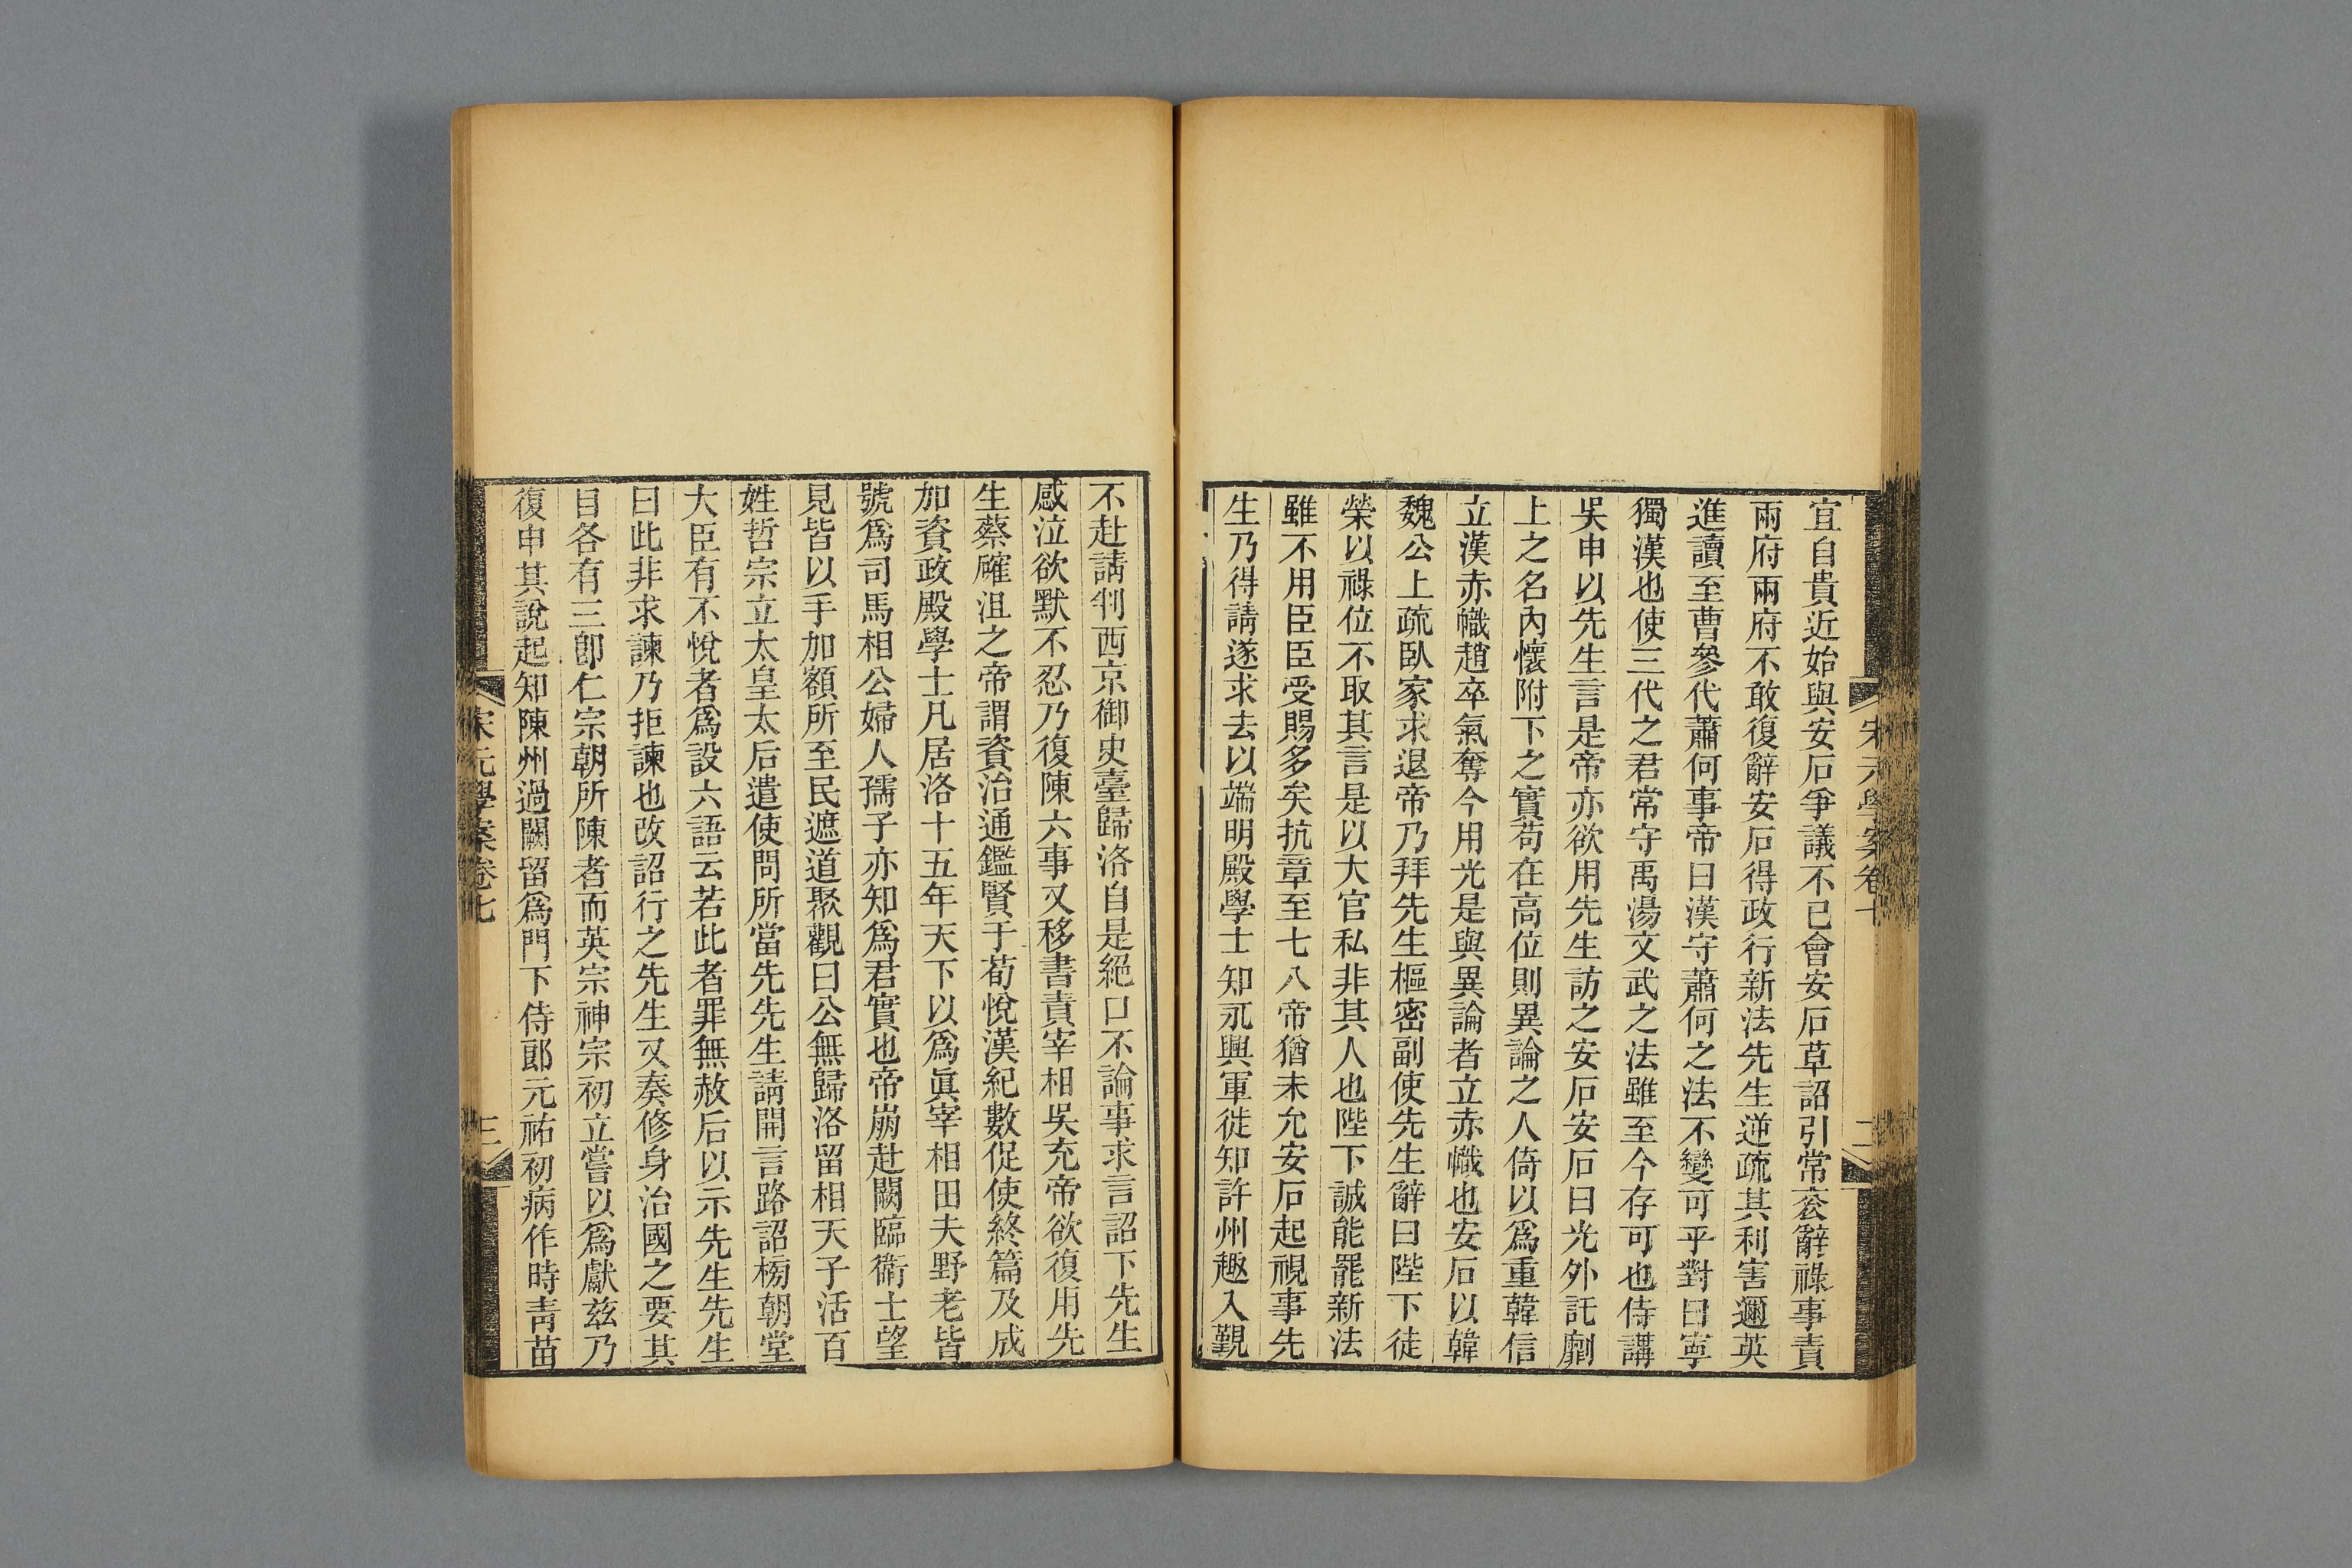 宋元學案卷七
二
宜自貴近始與安石爭議不已會安石草詔引常袞辭祿事責
兩府兩府不敢復辭安石得政行新法先生逆疏其利害邇英
進讀至曹參代蕭何事帝曰漢守蕭何之法不變可乎對曰寧
獨漢也使三代之君常守禹湯文武之法雖至今存可也侍講
吳申以先生言是帝亦欲用先生訪之安石安石曰光外託劘
上之名內懷附下之實苟在高位則異論之人倚以爲重韓信
立漢赤幟趙卒氣奪今用光是與異論者立赤幟也安石以韓
魏公上疏臥家求退帝乃拜先生樞密副使先生辭曰陛下徒
榮以祿位不取其言是以大官私非其人也陛下誠能罷新法
雖不用臣臣受賜多矣抗章至七八帝猶未允安石起視事先
生乃得請遂求去以端明殿學士知永興軍徙知許州趣入覲
不赴請判西京御史臺歸洛自是絕口不論事求言詔下先生
感泣欲默不忍乃復陳六事又移書責宰相吳充帝欲復用先
生蔡確沮之帝謂資治通鑑賢于荀悅漢紀數促使終篇及成
加資政殿學士凡居洛十五年天下以爲眞宰相田夫野老皆
號爲司馬相公婦人孺子亦知爲君實也帝崩赴闕臨衞士望
見皆以手加額所至民遮道聚觀曰公無歸洛留相天子活百
姓哲宗立太皇太后遣使問所當先先生請開言路詔榜朝堂
大臣有不悅者爲設六語云若此者罪無赦后以示先生先生
曰此非求諫乃拒諫也改詔行之先生又奏修身治國之要其
目各有三卽仁宗朝所陳者而英宗神宗初立嘗以爲獻兹乃
復申其說起知陳州過闕留爲門下侍郎元祐初病作時靑苗
宋元學案卷七
三